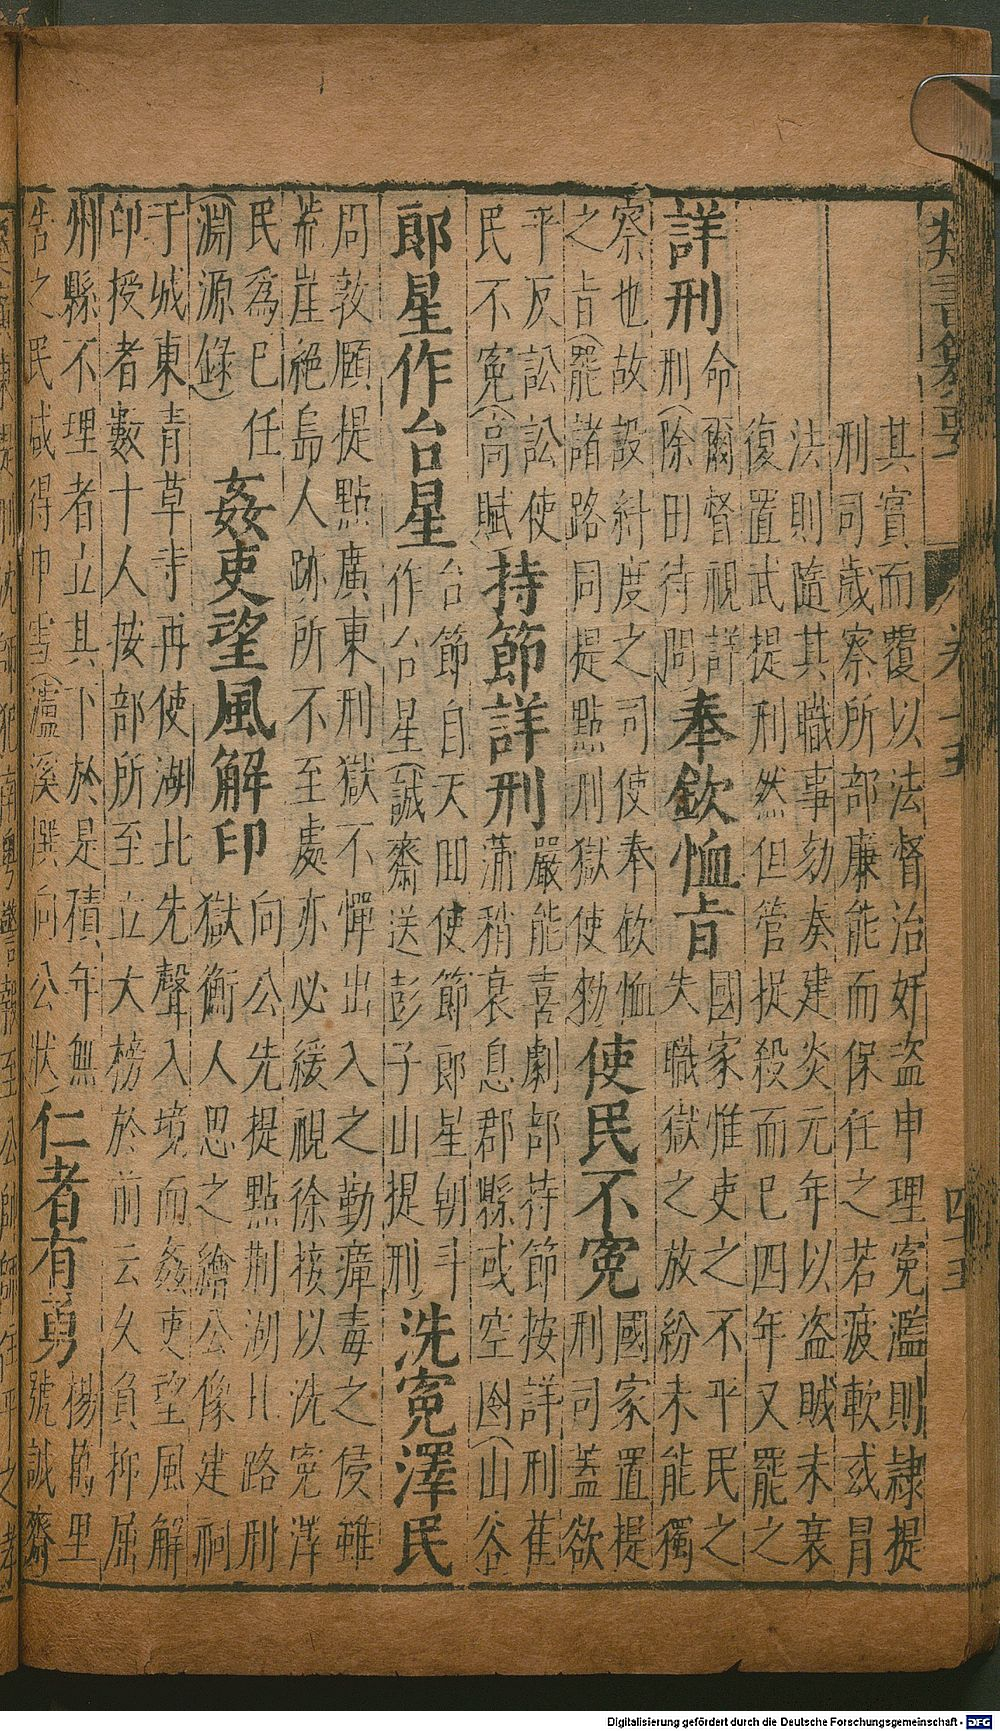 其實而覆以法督治奸盜申理冤濫則隷提
刑司歲察所部廉能而保任之若疲軟或冒
法則隨其職事劾奏建炎元年以盜賊未衰
復置武提刑然但管捉殺而已四年又罷之
詳刑
命爾督視詳
刑(除田待問)
奉欽恤㫖
國家惟吏之不平民之
失職獄之放紛未能獨
察也故設糾度之司使奉欽恤
之㫖(罷諸路同提點刑獄使勑)
使民不冤
國家置提
刑司蓋欲
平反訟訟使
民不冤(高賦)
持節詳刑
嚴能喜劇部持節按詳刑萑
蒲稍衰息郡縣或空囹(山谷
郎星作台星
台節自天回使節郎星朝斗
作台星(誠齋送彭子山提刑
洗冤澤民
周敦頤提點廣東刑獄不憚出入之勤瘴毒之侵雖
荒崖絕島人跡所不至處亦必緩視徐按以洗冤澤
民爲已任
(淵源錄)
姦吏望風解印
向公先提點荆湖北路刑
獄衡人思之繪公像建祠
于城東青草寺再使湖北先聲入境而姦吏望風解
印授者數十人按部所至立大榜於前云久負抑屈
州縣不理者立其下於是積年無
告之民咸得申雪(濂溪撰向公狀)
仁者有勇
楊萬里
號誠齋
類書纂要
卷十五
Digitalisierung gefördert durch die Deutsche Forschungsgemeinschaft - DFG